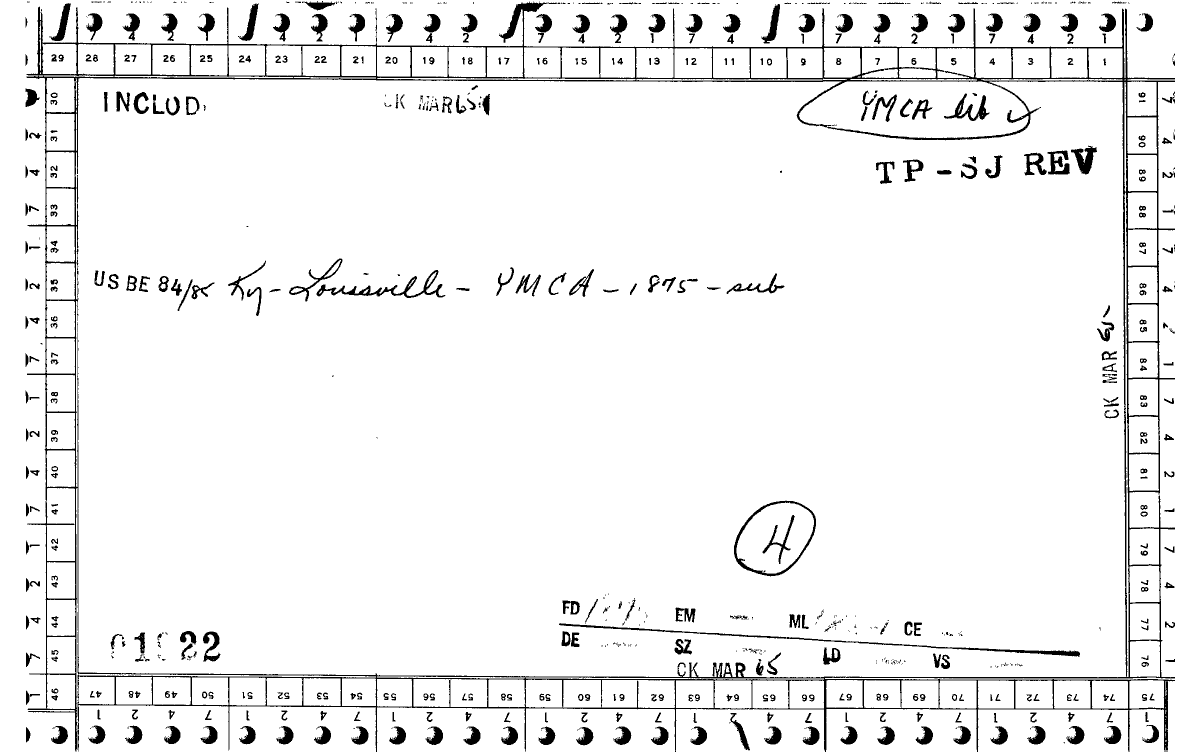 7 4 2 1 7 4 2 1 7 4 2 1 7 4 2 1 7 4 2 1
29 28 27 26 25 24 23 22 21 20 19 18 17 16 15 14 13 12 11 10 9 8 7 6 5 4 3 2 1
INCLUD CK MAR 65 YMCA lib ✓
TP-SJ REV
US BE 84/85 Ky - Louisville - YMCA - 1875 - sub
CK MAR 65
4
FD EM ML CE
DE SZ LD VS
22
CK MAR 65
30 31 32 33 34 35 36 37 38 39 40 41 42 43 44 45 46
91 90 89 88 87 86 85 84 83 82 81 80 79 78 77 76
47 48 49 50 51 52 53 54 55 56 57 58 59 60 61 62 63 64 65 66 67 68 69 70 71 72 73 74 75
1 2 4 7 1 2 4 7 1 2 4 7 1 2 4 7 1 2 4 7 1 2 4 7 1 2 4 7 1